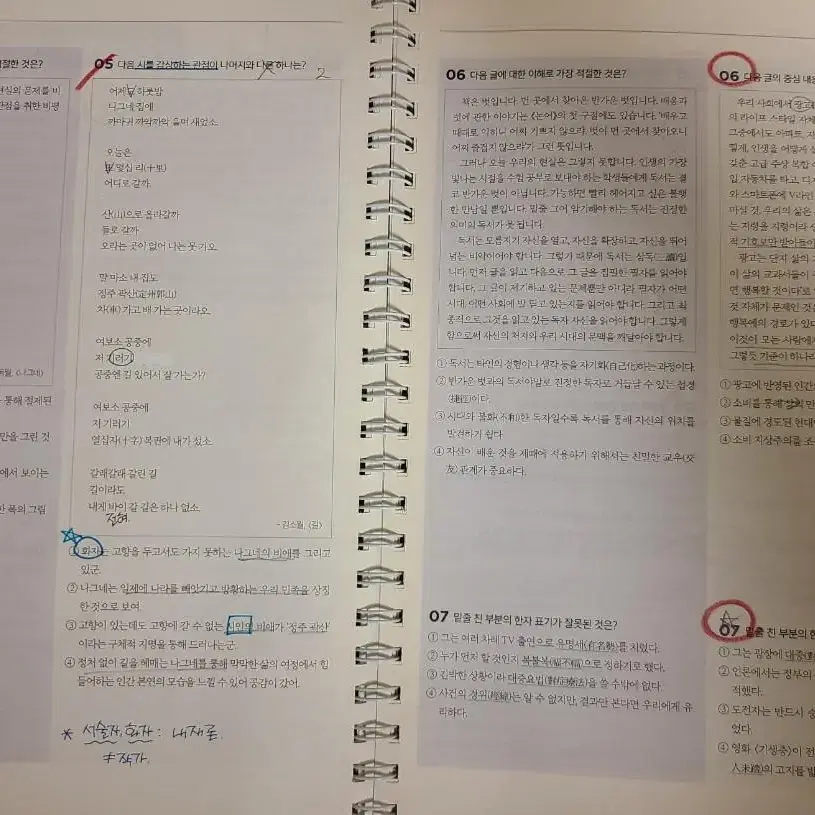 적절한 것은?
현실의 문제를 비
관점을 취한 비평
통해 절제된
만을 그린 것
에서 보이는
한 폭의 그림
05 다음 시를 감상하는 관점이 나머지와 다른 하나는?
2
어제도 하룻밤
나그네 집에
까마귀 까악까악 울며 새었소.
오늘은
또 몇 십 리(十里)
어디로 갈까.
산(山)으로 올라갈까
들로 갈까
오라는 곳이 없어 나는 못 가오.
말 마소 내 집도
정주 곽산(定州郭山)
차(車) 가고 배 가는 곳이라오.
여보소 공중에
저 기러기
공중엔 길 있어서 잘 가는가?
여보소 공중에
저 기러기
열십자(十字) 복판에 내가 섰소.
갈래갈래 갈린 길
길이라도
내게 바이 갈 길은 하나 없소.
전혀
- 김소월, 〈길〉
① 화자는 고향을 두고서도 가지 못하는 나그네의 비애를 그리고
있군.
② 나그네는 일제에 나라를 빼앗기고 방황하는 우리 민족을 상징
한 것으로 보여.
③ 고향이 있는데도 고향에 갈 수 없는 시인의 비애가 '정주 곽산'
이라는 구체적 지명을 통해 드러나는군.
④ 정처 없이 길을 헤매는 나그네를 통해 막막한 삶의 여정에서 힘
들어하는 인간 본연의 모습을 느낄 수 있어 공감이 갔어.
* 서술자, 화자 : 내재론
≠ 작가.
06 다음 글에 대한 이해로 가장 적절한 것은?
책은 벗입니다. 먼 곳에서 찾아온 반가운 벗입니다. 배움과
벗에 관한 이야기는 《논어》의 첫 구절에도 있습니다. '배우고
때때로 익히니 어찌 기쁘지 않으랴. 벗이 먼 곳에서 찾아오니
어찌 즐겁지 않으랴'가 그런 뜻입니다.
그러나 오늘 우리의 현실은 그렇지 못합니다. 인생의 가장
빛나는 시절을 수험 공부로 보내야 하는 학생들에게 독서는 결
코 반가운 벗이 아닙니다. 가능하면 빨리 헤어지고 싶은 불행
한 만남일 뿐입니다. 밑줄 그어 암기해야 하는 독서는 진정한
의미의 독서가 못 됩니다.
독서는 모름지기 자신을 열고, 자신을 확장하고, 자신을 뛰어
넘는 비약이어야 합니다. 그렇기 때문에 독서는 삼독(三讀)입
니다. 먼저 글을 읽고 다음으로 그 글을 집필한 필자를 읽어야
합니다. 그 글이 제기하고 있는 문제뿐만 아니라 필자가 어떤
시대, 어떤 사회에 발 딛고 있는지를 읽어야 합니다. 그리고 최
종적으로 그것을 읽고 있는 독자 자신을 읽어야 합니다. 그렇게
함으로써 자신의 처지와 우리 시대의 문맥을 깨달아야 합니다.
① 독서는 타인의 경험이나 생각 등을 자기화(自己化)하는 과정이다.
② 반가운 벗과의 독서야말로 진정한 독자로 거듭날 수 있는 첩경
(捷徑)이다.
③ 시대와 불화(不和)한 독자일수록 독서를 통해 자신의 위치를
발견하기 쉽다.
④ 자신이 배운 것을 제때에 적용하기 위해서는 친밀한 교우(交
友) 관계가 중요하다.
07 밑줄 친 부분의 한자 표기가 잘못된 것은?
① 그는 여러 차례 TV 출연으로 유명세(有名勢)를 치렀다.
② 누가 먼저 할 것인지 복불복(福不福)으로 정하기로 했다.
③ 긴박한 상황이라 대증요법(對症療法)을 쓸 수밖에 없다.
④ 사건의 경위(經緯)는 알 수 없지만, 결과만 본다면 우리에게 유
리하다.
06 다음 글의 중심 내용
우리 사회에서 광고
의 라이프 스타일 자체
입 자동차를 타고, 디지
와 스마트폰에 V라인
마실 것, 우리의 삶은
는 지령을 지령이라
적 기호로만 받아들이
광고는 단지 삶의
이 삶의 교과서들이
면 행복할 것이다'로
것 자체가 문제인 것은
행복에의 경로가 있다
이것이 모든 사람에게
그렇듯 기준이 하나라
① 광고에 반영된 인간
② 소비를 통해
③ 물질에 경도된 현대
④ 소비 지상주의를 조
07 밑줄 친 부분의 한
① 그는 광장에 대중(
② 언론에서는 정부의
적했다.
③ 도전자는 반드시
었다.
④ 영화 〈기생충〉이 전
人未踏)의 고지를 밟